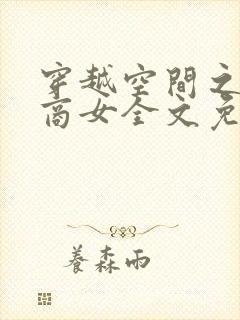 穿越空間之
商女全文免
養森雨